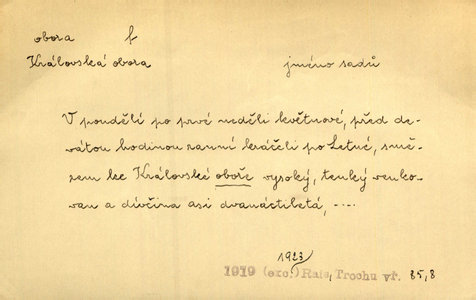 obora f
Královská obora
jméno sadů
V pondělí po prvé neděli květnové, před de-
vátou hodinou ranní kráčeli po Letné, smě-
rem ke Královské oboře vysoký, tenký venko-
van a dívčina asi dvanáctiletá, ....
1923
1919 (exc.) Rais, Trochu vř. 85,8